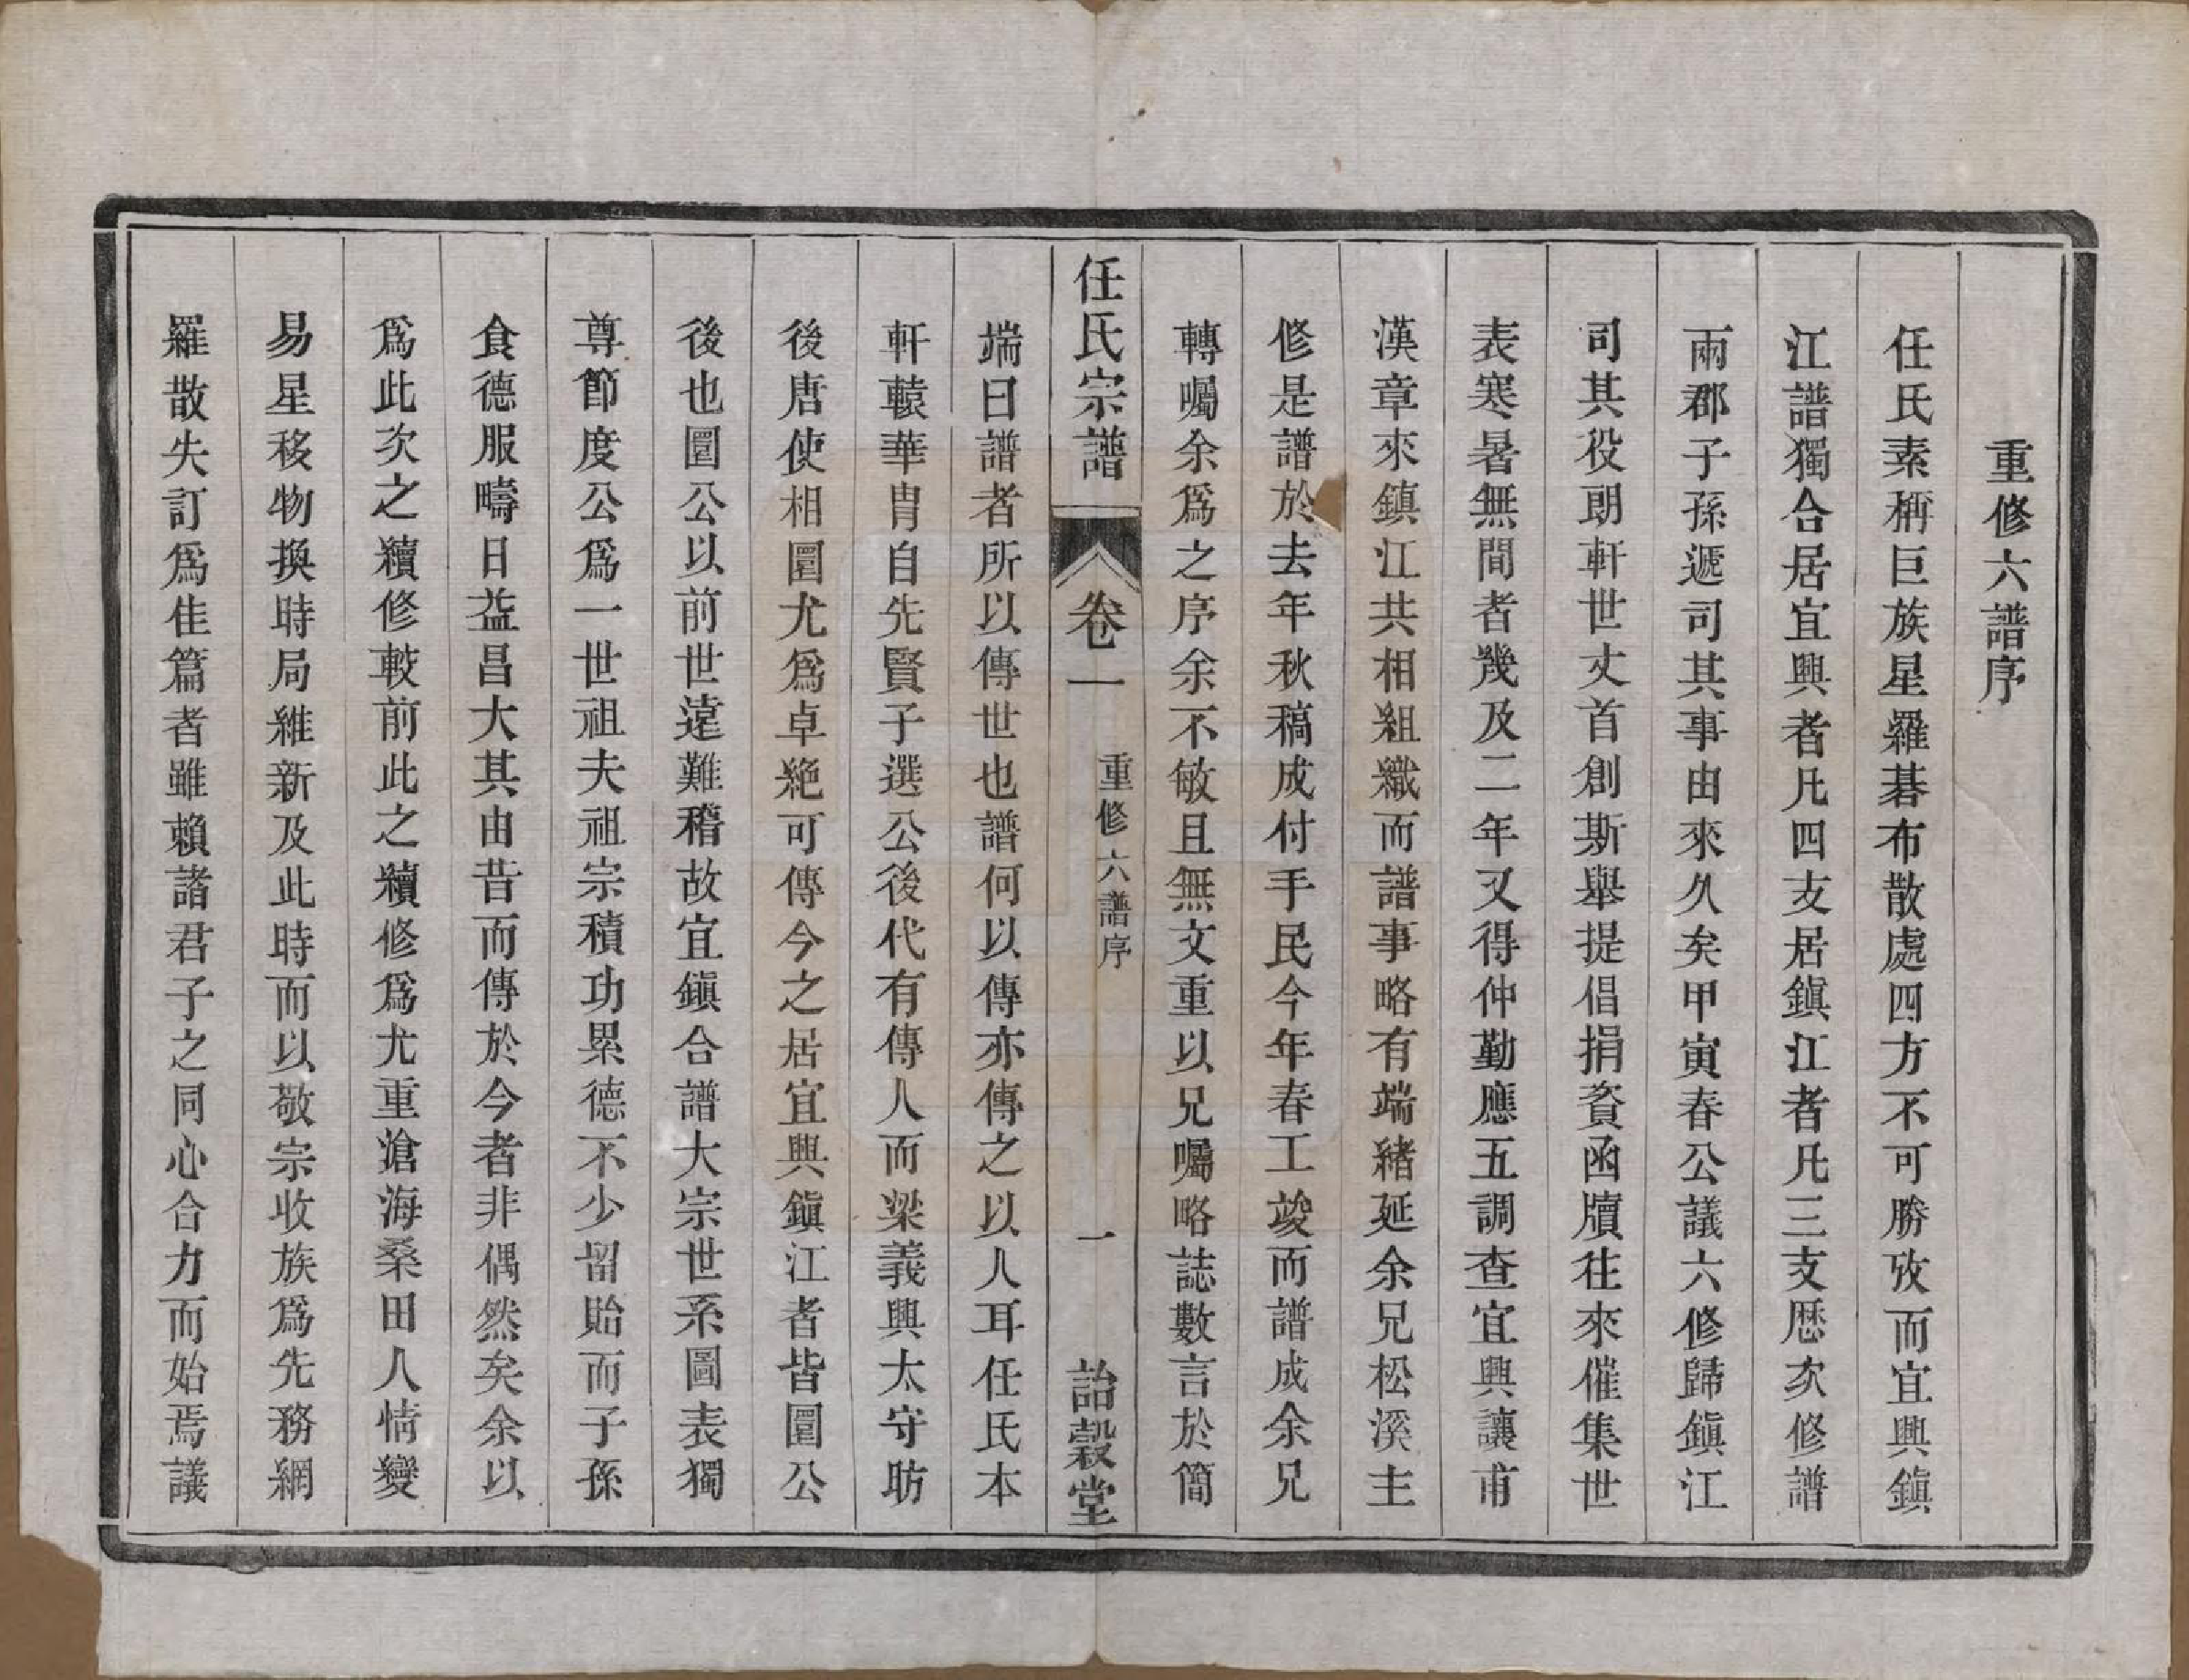 重修六譜序
任氏素稱巨族星羅碁布散處四方不可勝攷而宜興鎭
江譜獨合居宜興者凡四支居鎭江者凡三支歷次修譜
兩郡子孫遞司其事由來久矣甲寅春公議六修歸鎭江
司其役朗軒世丈首創斯舉提倡捐資函牘往來催集世
表寒暑無間者幾及二年又得仲勤應五調查宜興讓甫
漢章來鎭江共相組織而譜事略有端緒延余兄松溪主
修是譜於去年秋稿成付手民今年春工竣而譜成余兄
轉囑余爲之序余不敏且無文重以兄囑略誌數言於簡
任氏宗譜 卷一 重修六譜序 一 詒穀堂
端曰譜者所以傳世也譜何以傳亦傳之以人耳任氏本
軒轅華胄自先賢子選公後代有傳人而梁義興太守昉
後唐使相圜尤爲卓絶可傳今之居宜興鎭江者皆圜公
後也圜公以前世遠難稽故宜鎭合譜大宗世系圖表獨
尊節度公爲一世祖夫祖宗積功累德不少留貽而子孫
食德服疇日益昌大其由昔而傳於今者非偶然矣余以
爲此次之續修較前此之續修爲尤重滄海桑田人情變
易星移物換時局維新及此時而以敬宗收族爲先務網
羅散失訂爲佳篇者雖賴諸君子之同心合力而始焉議